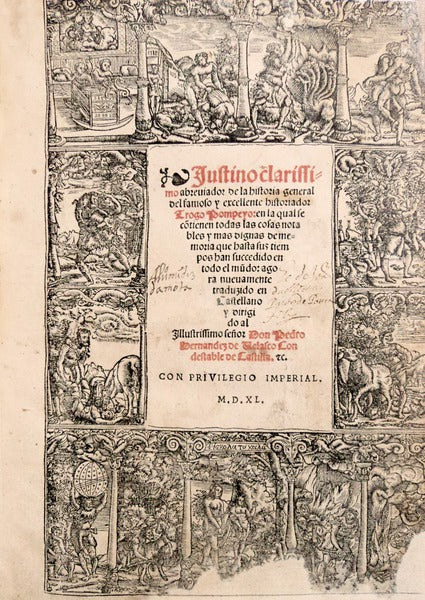 Justino clarissi-
mo abreuiador de la historia general
del famoso y excellente historiador
Trogo Pompeyo: en la qual se
cōtienen todas las cosas nota
bles y mas dignas de me-
moria que hasta sus tiem
pos han succedido en
todo el mūdo: ago
ra nueuamente
traduzido en
Castellano
y dirigi
do al
Illustrissimo señor Don Pedro
Hernandez de Uelasco Con
destable de Castilla. ⁊c.
CON PRIVILEGIO IMPERIAL.
M.D.XL.